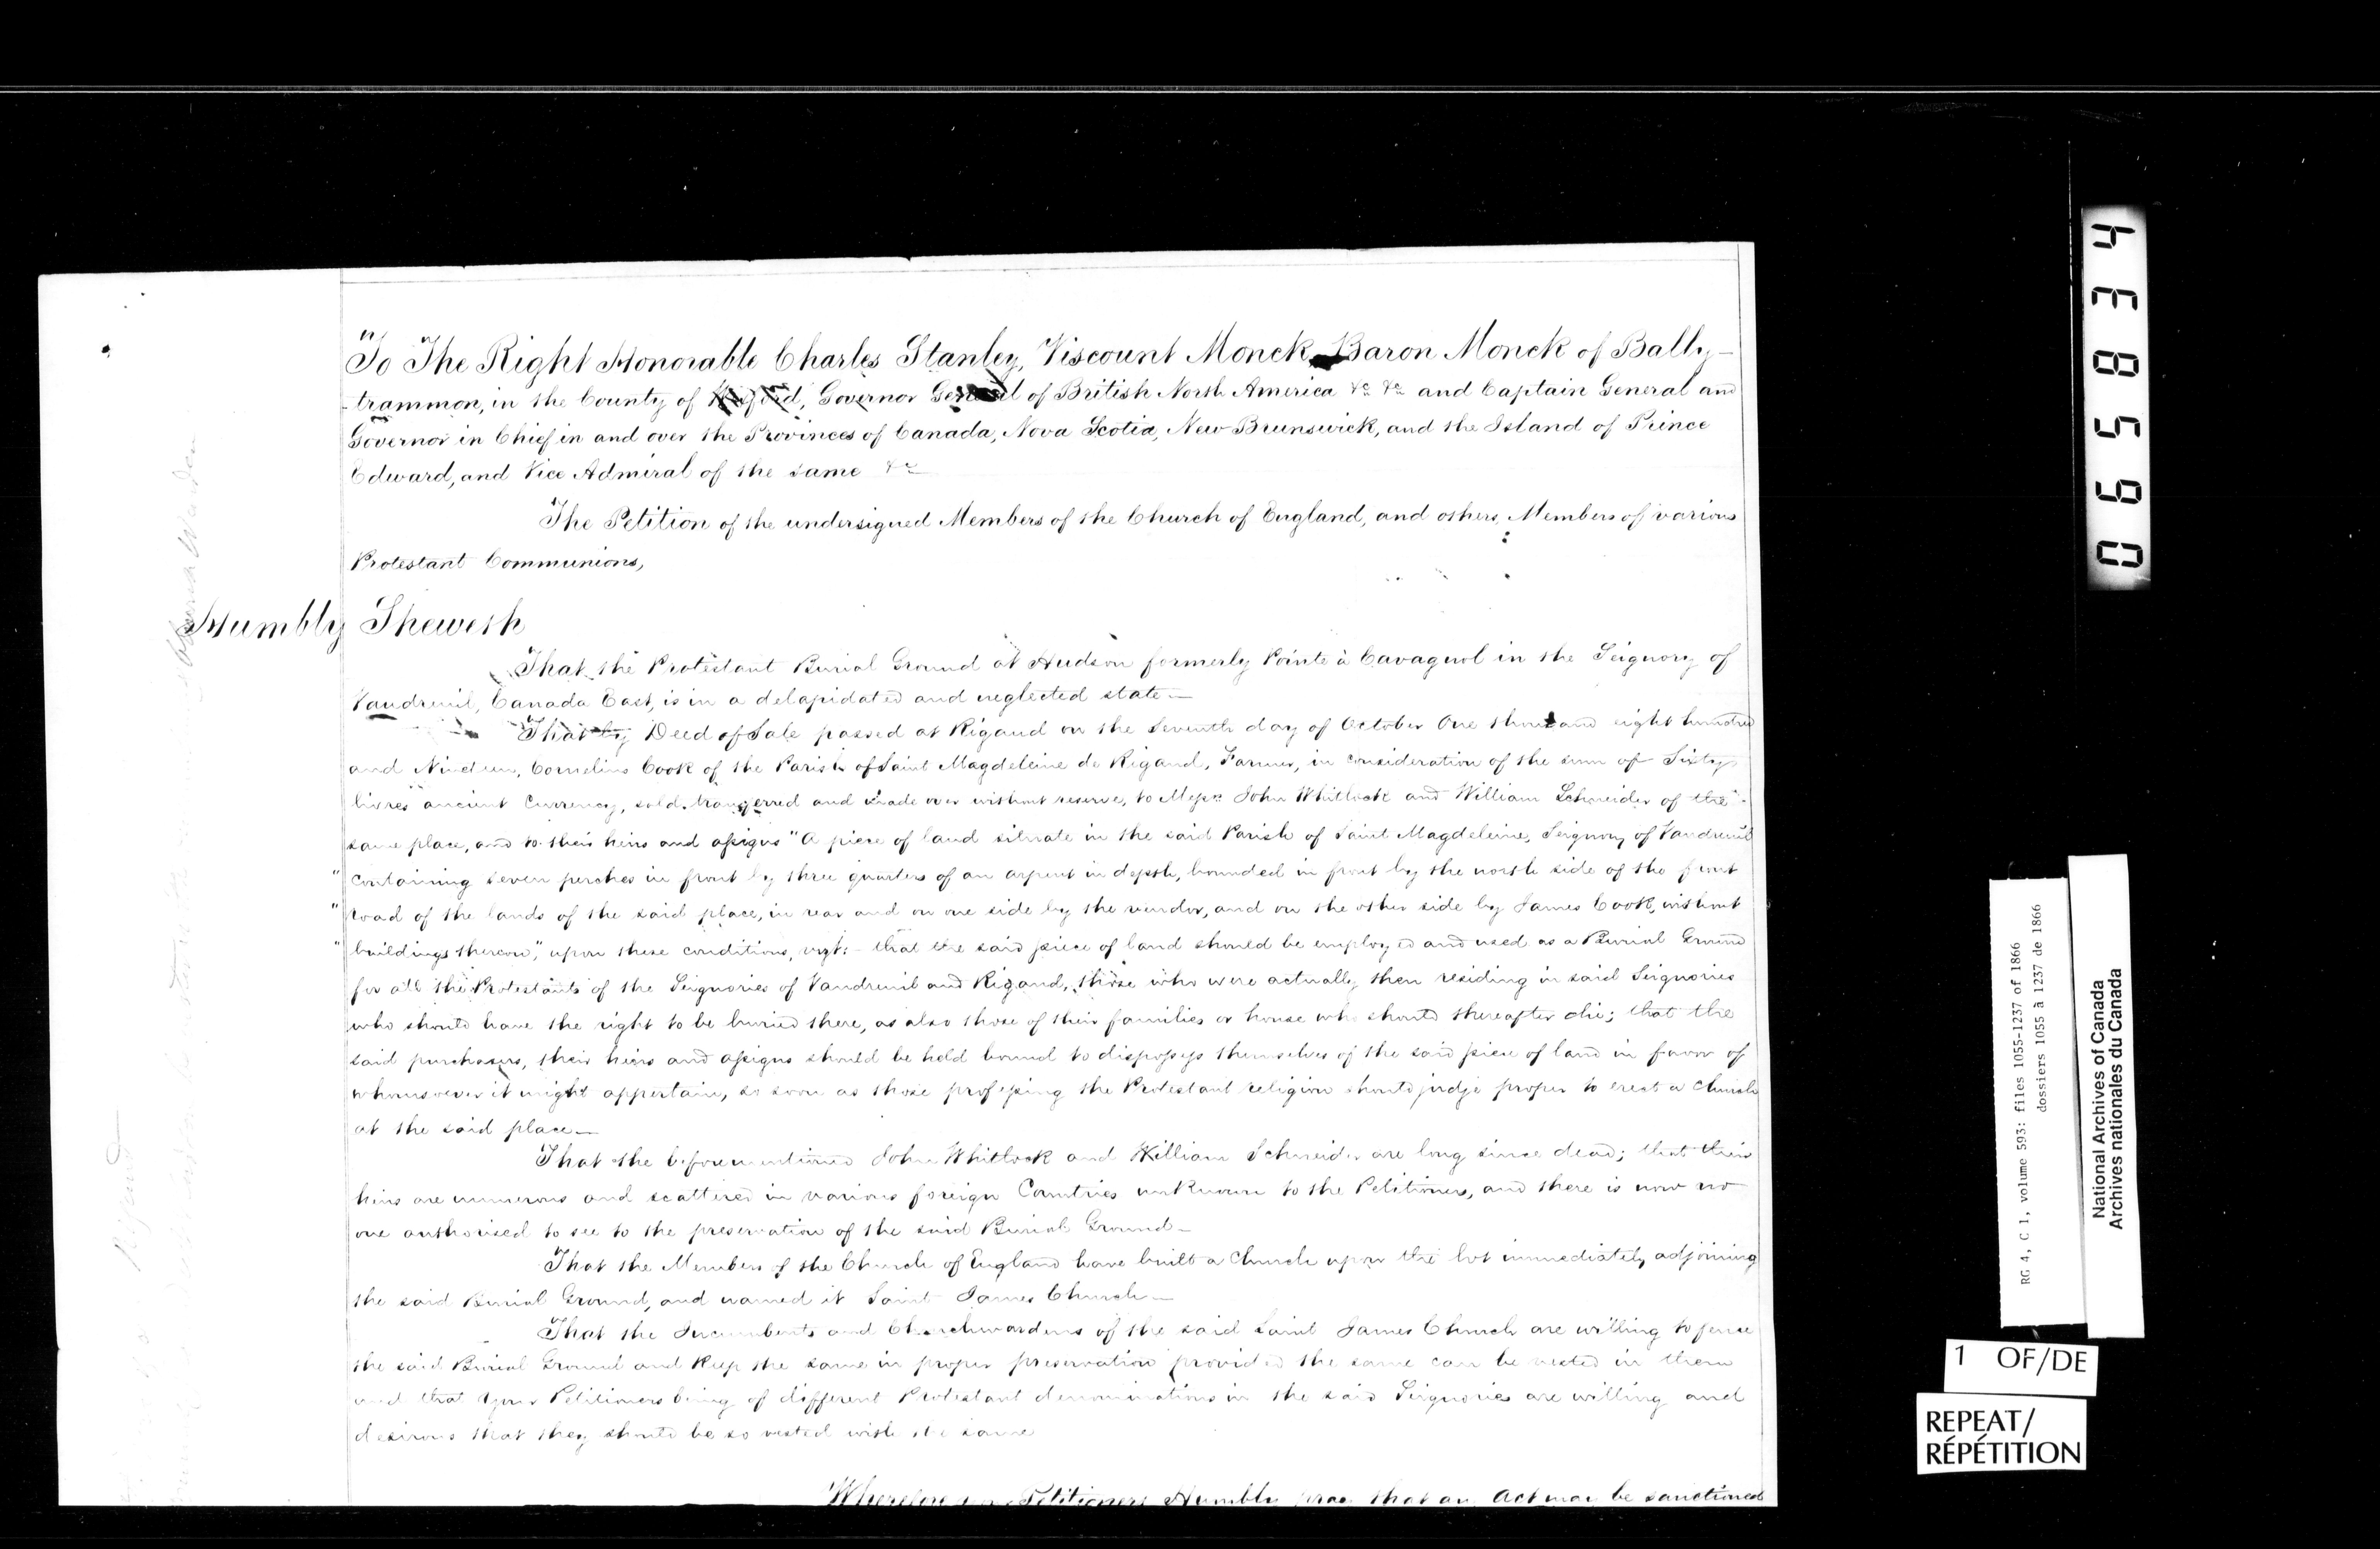 To The Right Honorable Charles Stanley, Viscount Monck Baron Monck of Bally-
-trammon, in the County of Wexford, Governor General of British North America &c &c and Captain General and
Governor in Chief in and over the Provinces of Canada, Nova Scotia, New Brunswick, and the Island of Prince
Edward, and Vice Admiral of the same &c
The Petition of the undersigned Members of the Church of England, and others, Members of various
Protestant Communions,
Humbly Sheweth
That the Protestant Burial Ground at Hudson formerly Pointe à Cavagnol in the Seignory of
Vaudreuil, Canada East, is in a delapidated and neglected state—
That by Deed of Sale passed at Rigaud on the Seventh day of October One thousand eight hundred
and Nineteen, Cornelius Cook of the Parish of Saint Magdeleine de Rigaud, Farmer, in consideration of the sum of Sixty
livres ancient Currency, sold, transferred and made over without reserve, to Messrs John Whitlock and William Schneider of the
same place, and to their heirs and assigns "A piece of land situate in the said Parish of Saint Magdeleine, Seignory of Vaudreuil
" containing seven perches in front by three quarters of an arpent in depth, bounded in front by the north side of the front
" road of the lands of the said place, in rear and on one side by the vendor, and on the other side by James Cook, without
" buildings thereon", upon these conditions, vizt:- that the said piece of land should be employed and used as a Burial Ground
for all the Protestants of the Seignories of Vaudreuil and Rigaud, those who were actually then residing in said Seignories
who should have the right to be buried there, as also those of their families or house who should thereafter die; that the
said purchasers, their heirs and assigns should be held bound to dispossess themselves of the said piece of land in favor of
whomsoever it might appertain, so soon as those professing the Protestant religion should judge proper to erect a Church
at the said place—
That the beforementioned John Whitlock and William Schneider are long since dead; that their
heirs are numerous and scattered in various foreign Countries unknown to the Petitioners, and there is now no
one authorised to see to the preservation of the said Burial Ground—
That the Members of the Church of England have built a Church upon the lot immediately adjoining
the said Burial Ground, and named it Saint James Church—
That the Incumbents and Churchwardens of the said Saint James Church are willing to fence
the said Burial Ground and keep the same in proper preservation provided the same can be vested in them
and that your Petitioners being of different Protestant denominations in the said Seignories are willing and
desirous that they should be so vested with the same
Wherefore your Petitioners Humbly pray that an Act may be sanctioned
065834
RG 4, C 1, volume 593: files 1055-1237 of 1866
dossiers 1055 à 1237 de 1866
National Archives of Canada
Archives nationales du Canada
1 OF/DE
REPEAT/
RÉPÉTITION